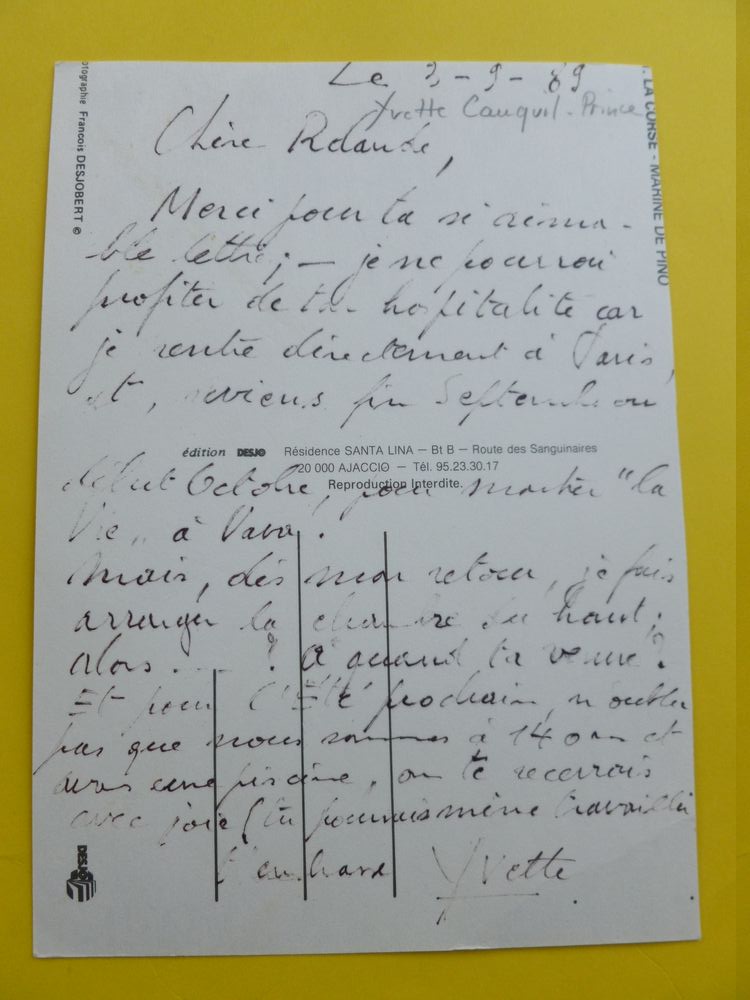 Le 3-9-89
Yvette Cauquil-Prince
Chère Rolande,
Merci pour ta si aima-
ble lettre; — je ne pourrai
profiter de ton hospitalité car
je rentre directement à Paris,
et, reviens fin Septembre ou
édition DESJO Résidence SANTA LINA — Bt B — Route des Sanguinaires
20 000 AJACCIO — Tél. 95.23.30.17
Reproduction Interdite.
début Octobre, pour monter "la
Vie" à Vava.
Mais, dès mon retour, je fais
arranger la chambre du haut;
alors .... ? à quand ta venue?
Et pour l'Eté prochain, n'oublie
pas que nous sommes à 14 et
avons une piscine, on te recevrais
avec joie (tu pourrais même travailler
t'embrasse Yvette
otographie François DESJOBERT ©
LA CORSE - MARINE DE PINO
DESJO